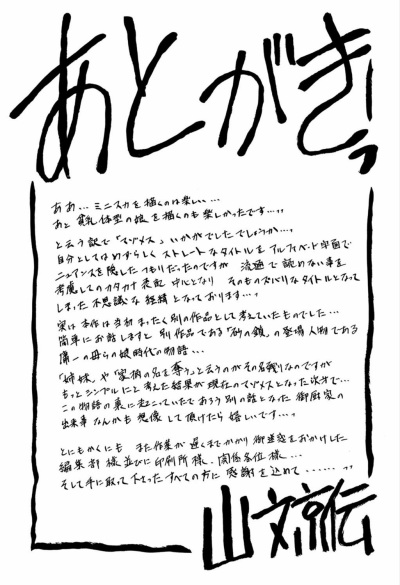 あとがきっ
ああ…ミニスカを描くのは楽しい…
あと 貧乳体型の娘を描くのも楽しかったです…っっ
と云う訳で「マゾメス」いかがでしたでしょうか…っ
自分としてはめずらしく ストレートなタイトルを アルファベット印画で
ニュアンスを隠したつもりだったのですが 流通で読めない事を
考慮してのカタカナ表記 中心となり そのものズバリなタイトルとなって
しまった不思議な経緯となっております…っ
実は本作は当初まったく別の作品として考えていたものでした…
簡単にお話しますと 別作品である「砂の鎖」の登場人物である
偉一の母らの娘時代の物語…
「姉妹」や「家柄の名を奪う」と云うのがその名残りなのですが
もっとシンプルにと考えた結果が現在のマゾメスとなった次第で…
この物語の裏に起こっていたであろう別の話となった 御厨家の
出来事なんかも想像して頂けたら嬉しいです…っ
とにもかくにも また作業が遅くまでかかり御迷惑をおかけした
編集部様並びに印刷所様、関係各位様…
そして手に取って下さったすべての方に 感謝を込めて……っっ
山文京伝